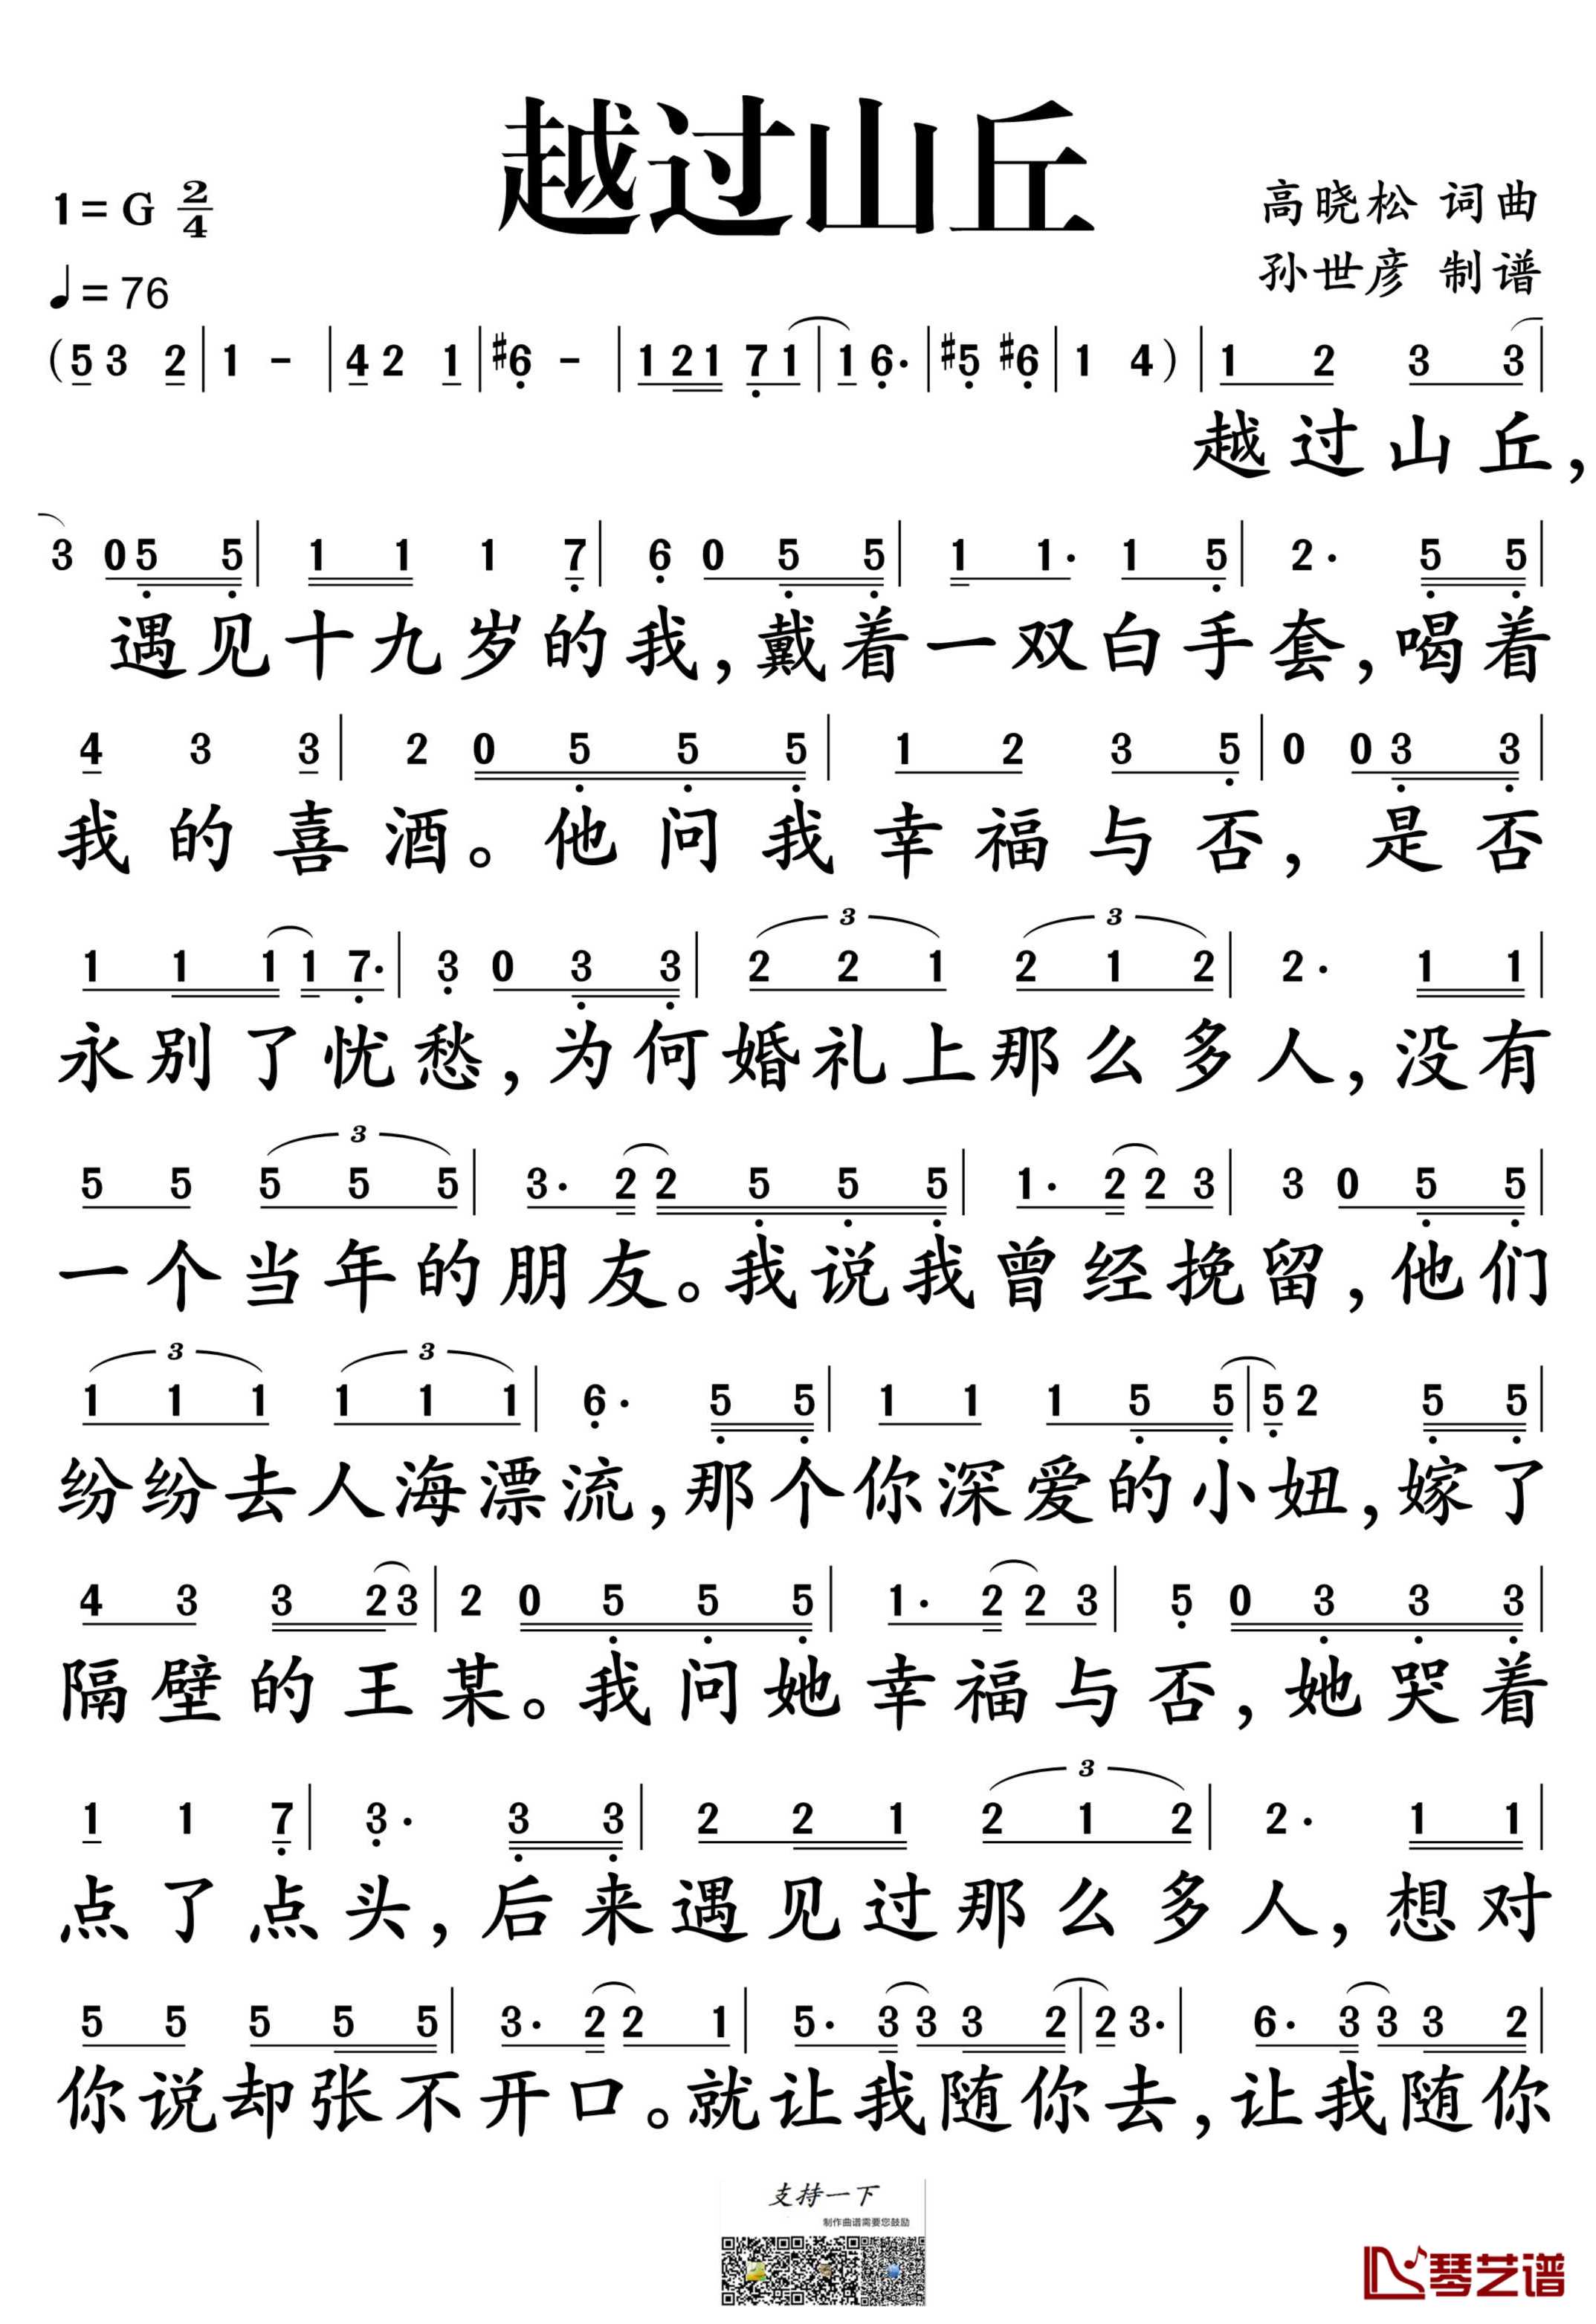 越过山丘
1= G 2/4
高晓松 词曲
♩= 76
孙世彦 制谱
(5 3 2 | 1 - | 4 2 1 | #6 - | 1 2 1 7 1 | 1 6· | #5 #6 | 1 4 ) | 1 2 3 3 |
越过山丘，
3 0 5 5 | 1 1 1 7 | 6 0 5 5 | 1 1· 1 5 | 2· 5 5 |
遇见十九岁的我，戴着一双白手套，喝着
4 3 3 | 2 0 5 5 5 | 1 2 3 5 | 0 0 3 3 |
我的喜酒。他问我幸福与否，是否
1 1 1 1 7· | 3 0 3 3 | 2 2 1 2 1 2 | 2· 1 1 |
永别了忧愁，为何婚礼上那么多人，没有
5 5 5 5 5 | 3· 2 2 5 5 5 | 1· 2 2 3 | 3 0 5 5 |
一个当年的朋友。我说我曾经挽留，他们
1 1 1 1 1 1 | 6· 5 5 | 1 1 1 5 5 | 5 2 5 5 |
纷纷去人海漂流，那个你深爱的小妞，嫁了
4 3 3 2 3 | 2 0 5 5 5 | 1· 2 2 3 | 5 0 3 3 3 |
隔壁的王某。我问她幸福与否，她哭着
1 1 7 | 3· 3 3 | 2 2 1 2 1 2 | 2· 1 1 |
点了点头，后来遇见过那么多人，想对
5 5 5 5 5 | 3· 2 2 1 | 5· 3 3 3 2 | 2 3· | 6· 3 3 3 2 |
你说却张不开口。就让我随你去，让我随你
支持一下
制作曲谱需要您鼓励
琴艺谱